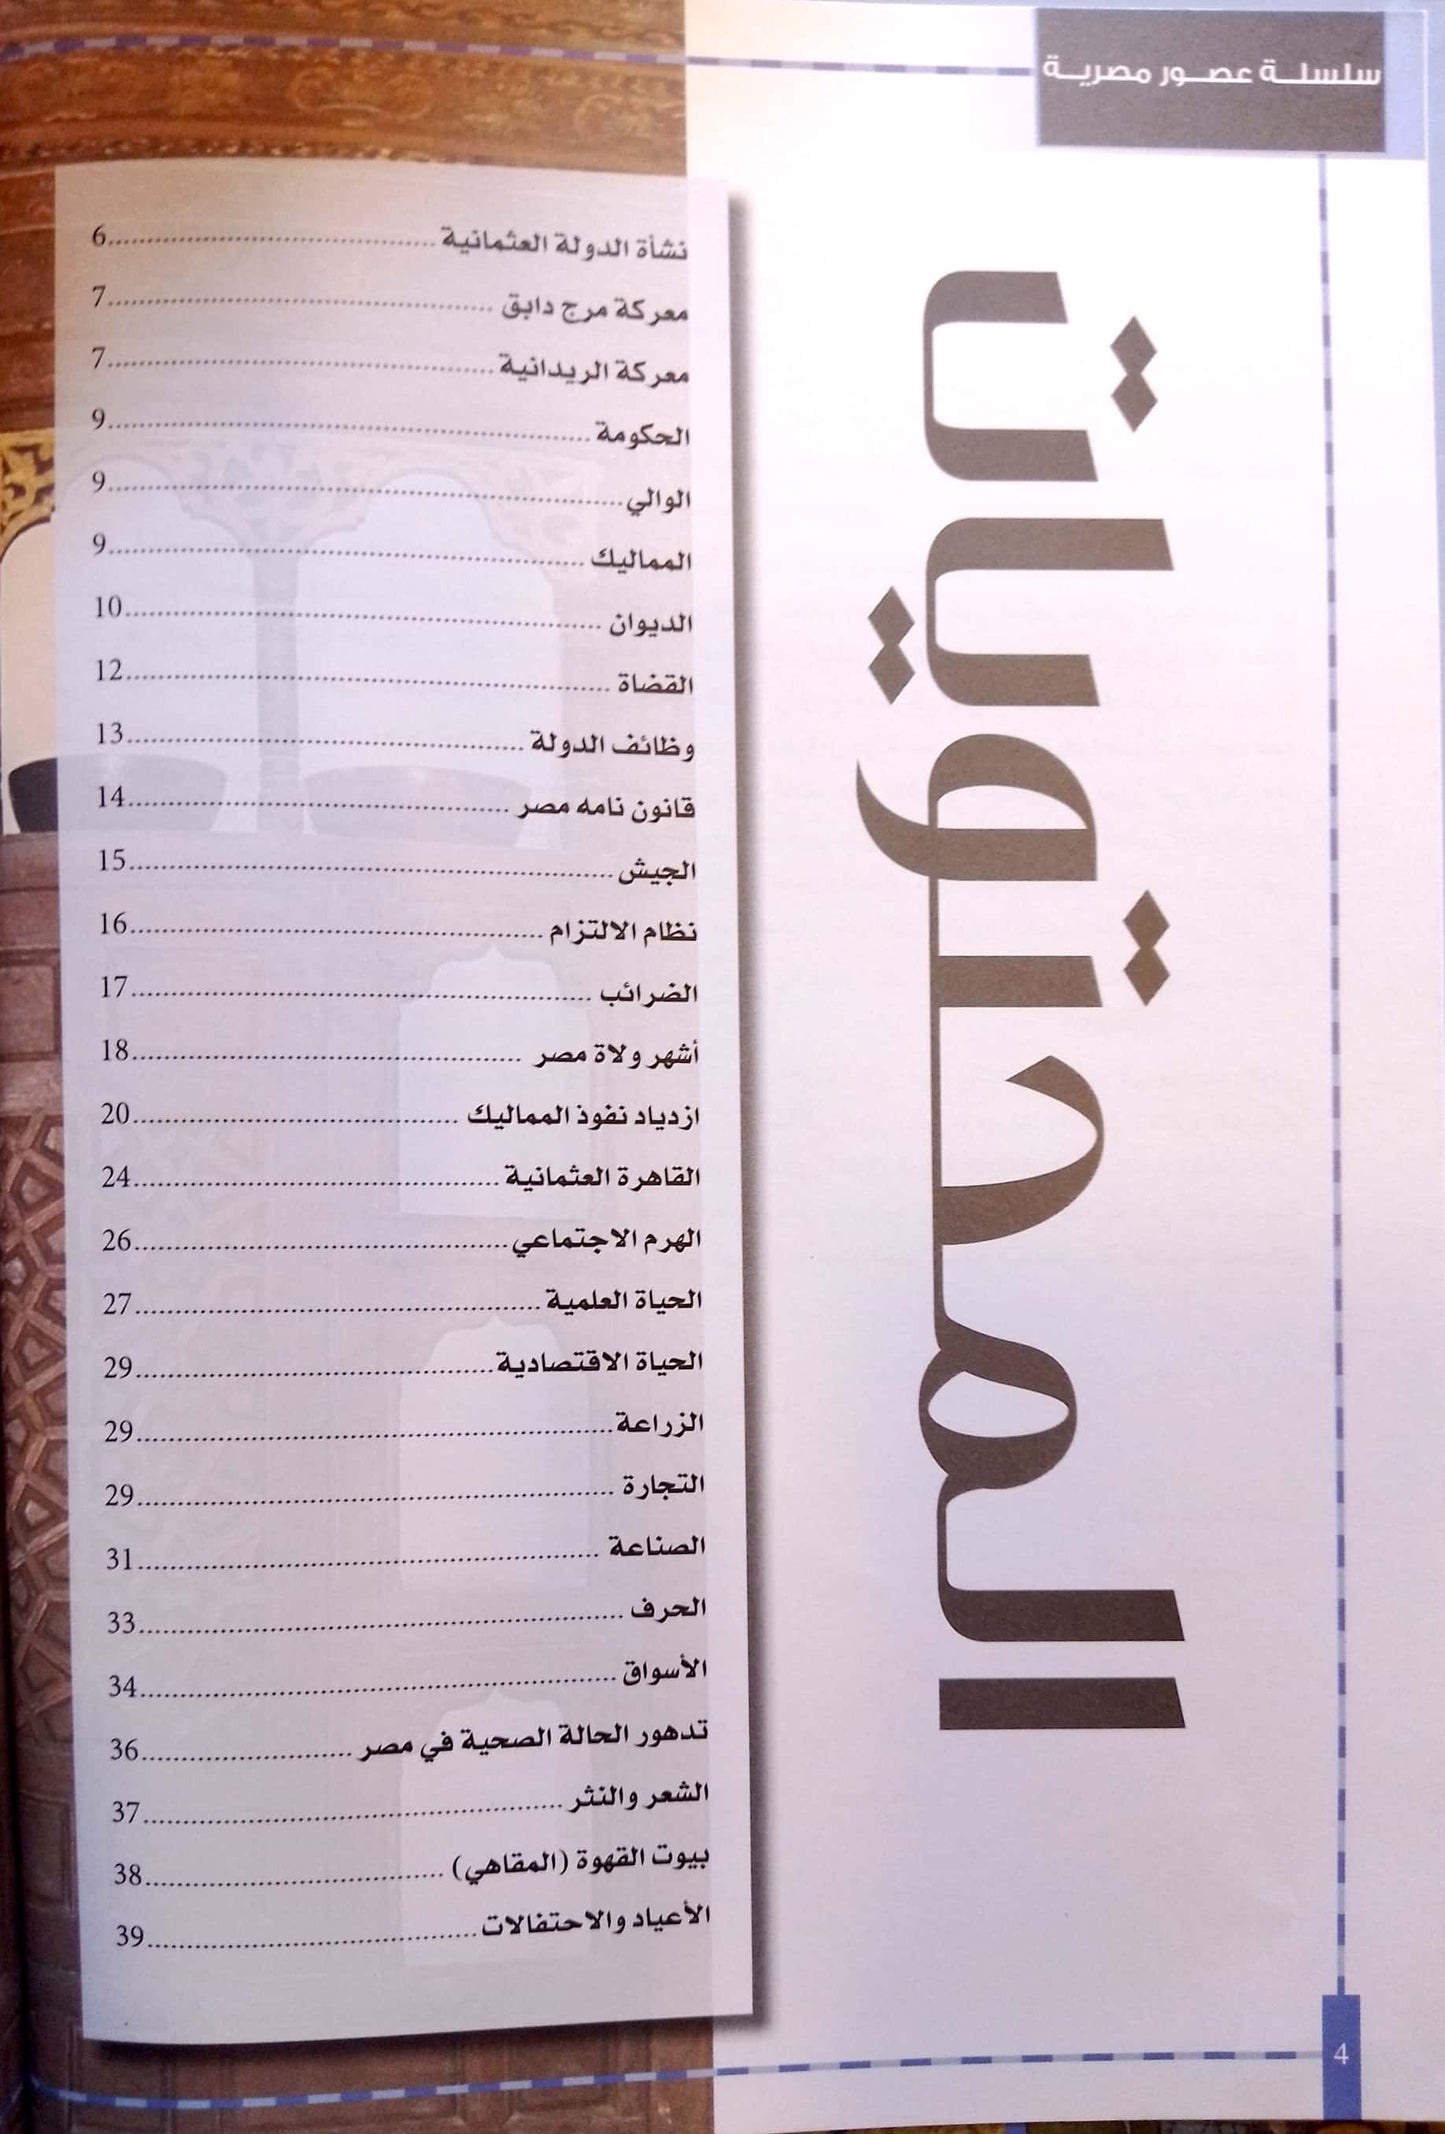 سلسلة عصور مصرية
المحتويات
نشأة الدولة العثمانية ........ 6
معركة مرج دابق ........ 7
معركة الريدانية ........ 7
الحكومة ........ 9
الوالي ........ 9
المماليك ........ 9
الديوان ........ 10
القضاة ........ 12
وظائف الدولة ........ 13
قانون نامه مصر ........ 14
الجيش ........ 15
نظام الالتزام ........ 16
الضرائب ........ 17
أشهر ولاة مصر ........ 18
ازدياد نفوذ المماليك ........ 20
القاهرة العثمانية ........ 24
الهرم الاجتماعي ........ 26
الحياة العلمية ........ 27
الحياة الاقتصادية ........ 29
الزراعة ........ 29
التجارة ........ 29
الصناعة ........ 31
الحرف ........ 33
الأسواق ........ 34
تدهور الحالة الصحية في مصر ........ 36
الشعر والنثر ........ 37
بيوت القهوة (المقاهي) ........ 38
الأعياد والاحتفالات ........ 39
4